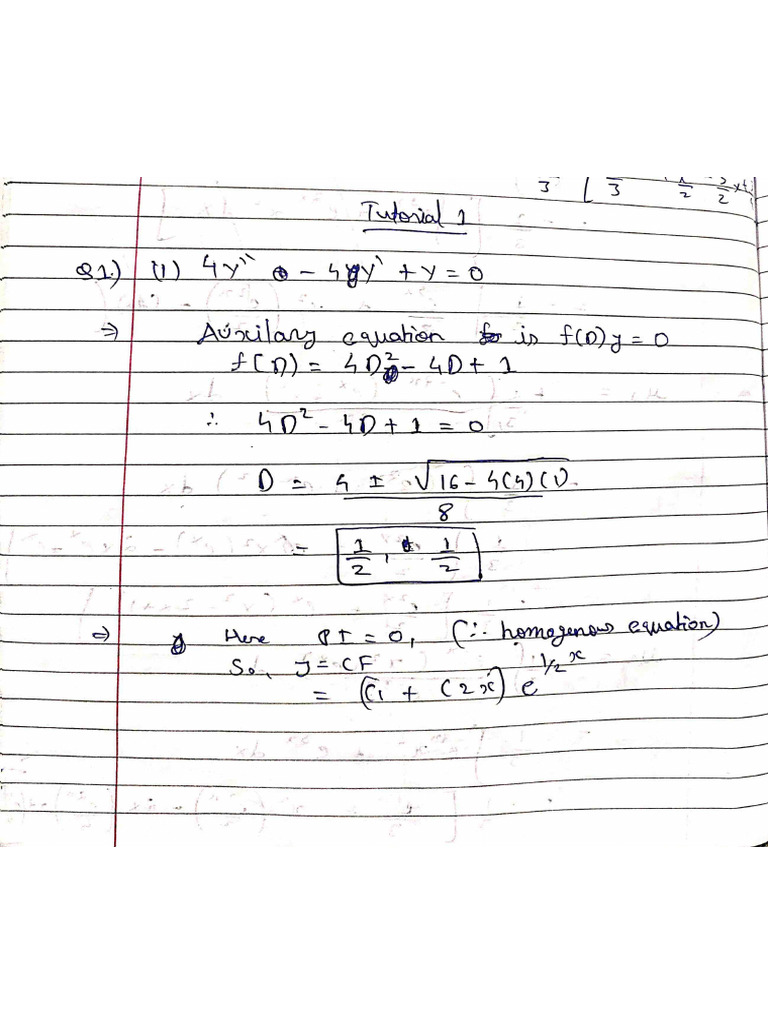 Tutorial 1
Q1.) (1) 4y'' - 4y' + y = 0
⇒ Auxilary equation is f(D)y = 0
f(D) = 4D² - 4D + 1
∴ 4D² - 4D + 1 = 0
D = 4 ± √16 - 4(4)(1)
8
= 1/2, 1/2
⇒ Here PI = 0, (∵ homogenous equation)
So, y = CF
= (C1 + C2x) e^1/2 x